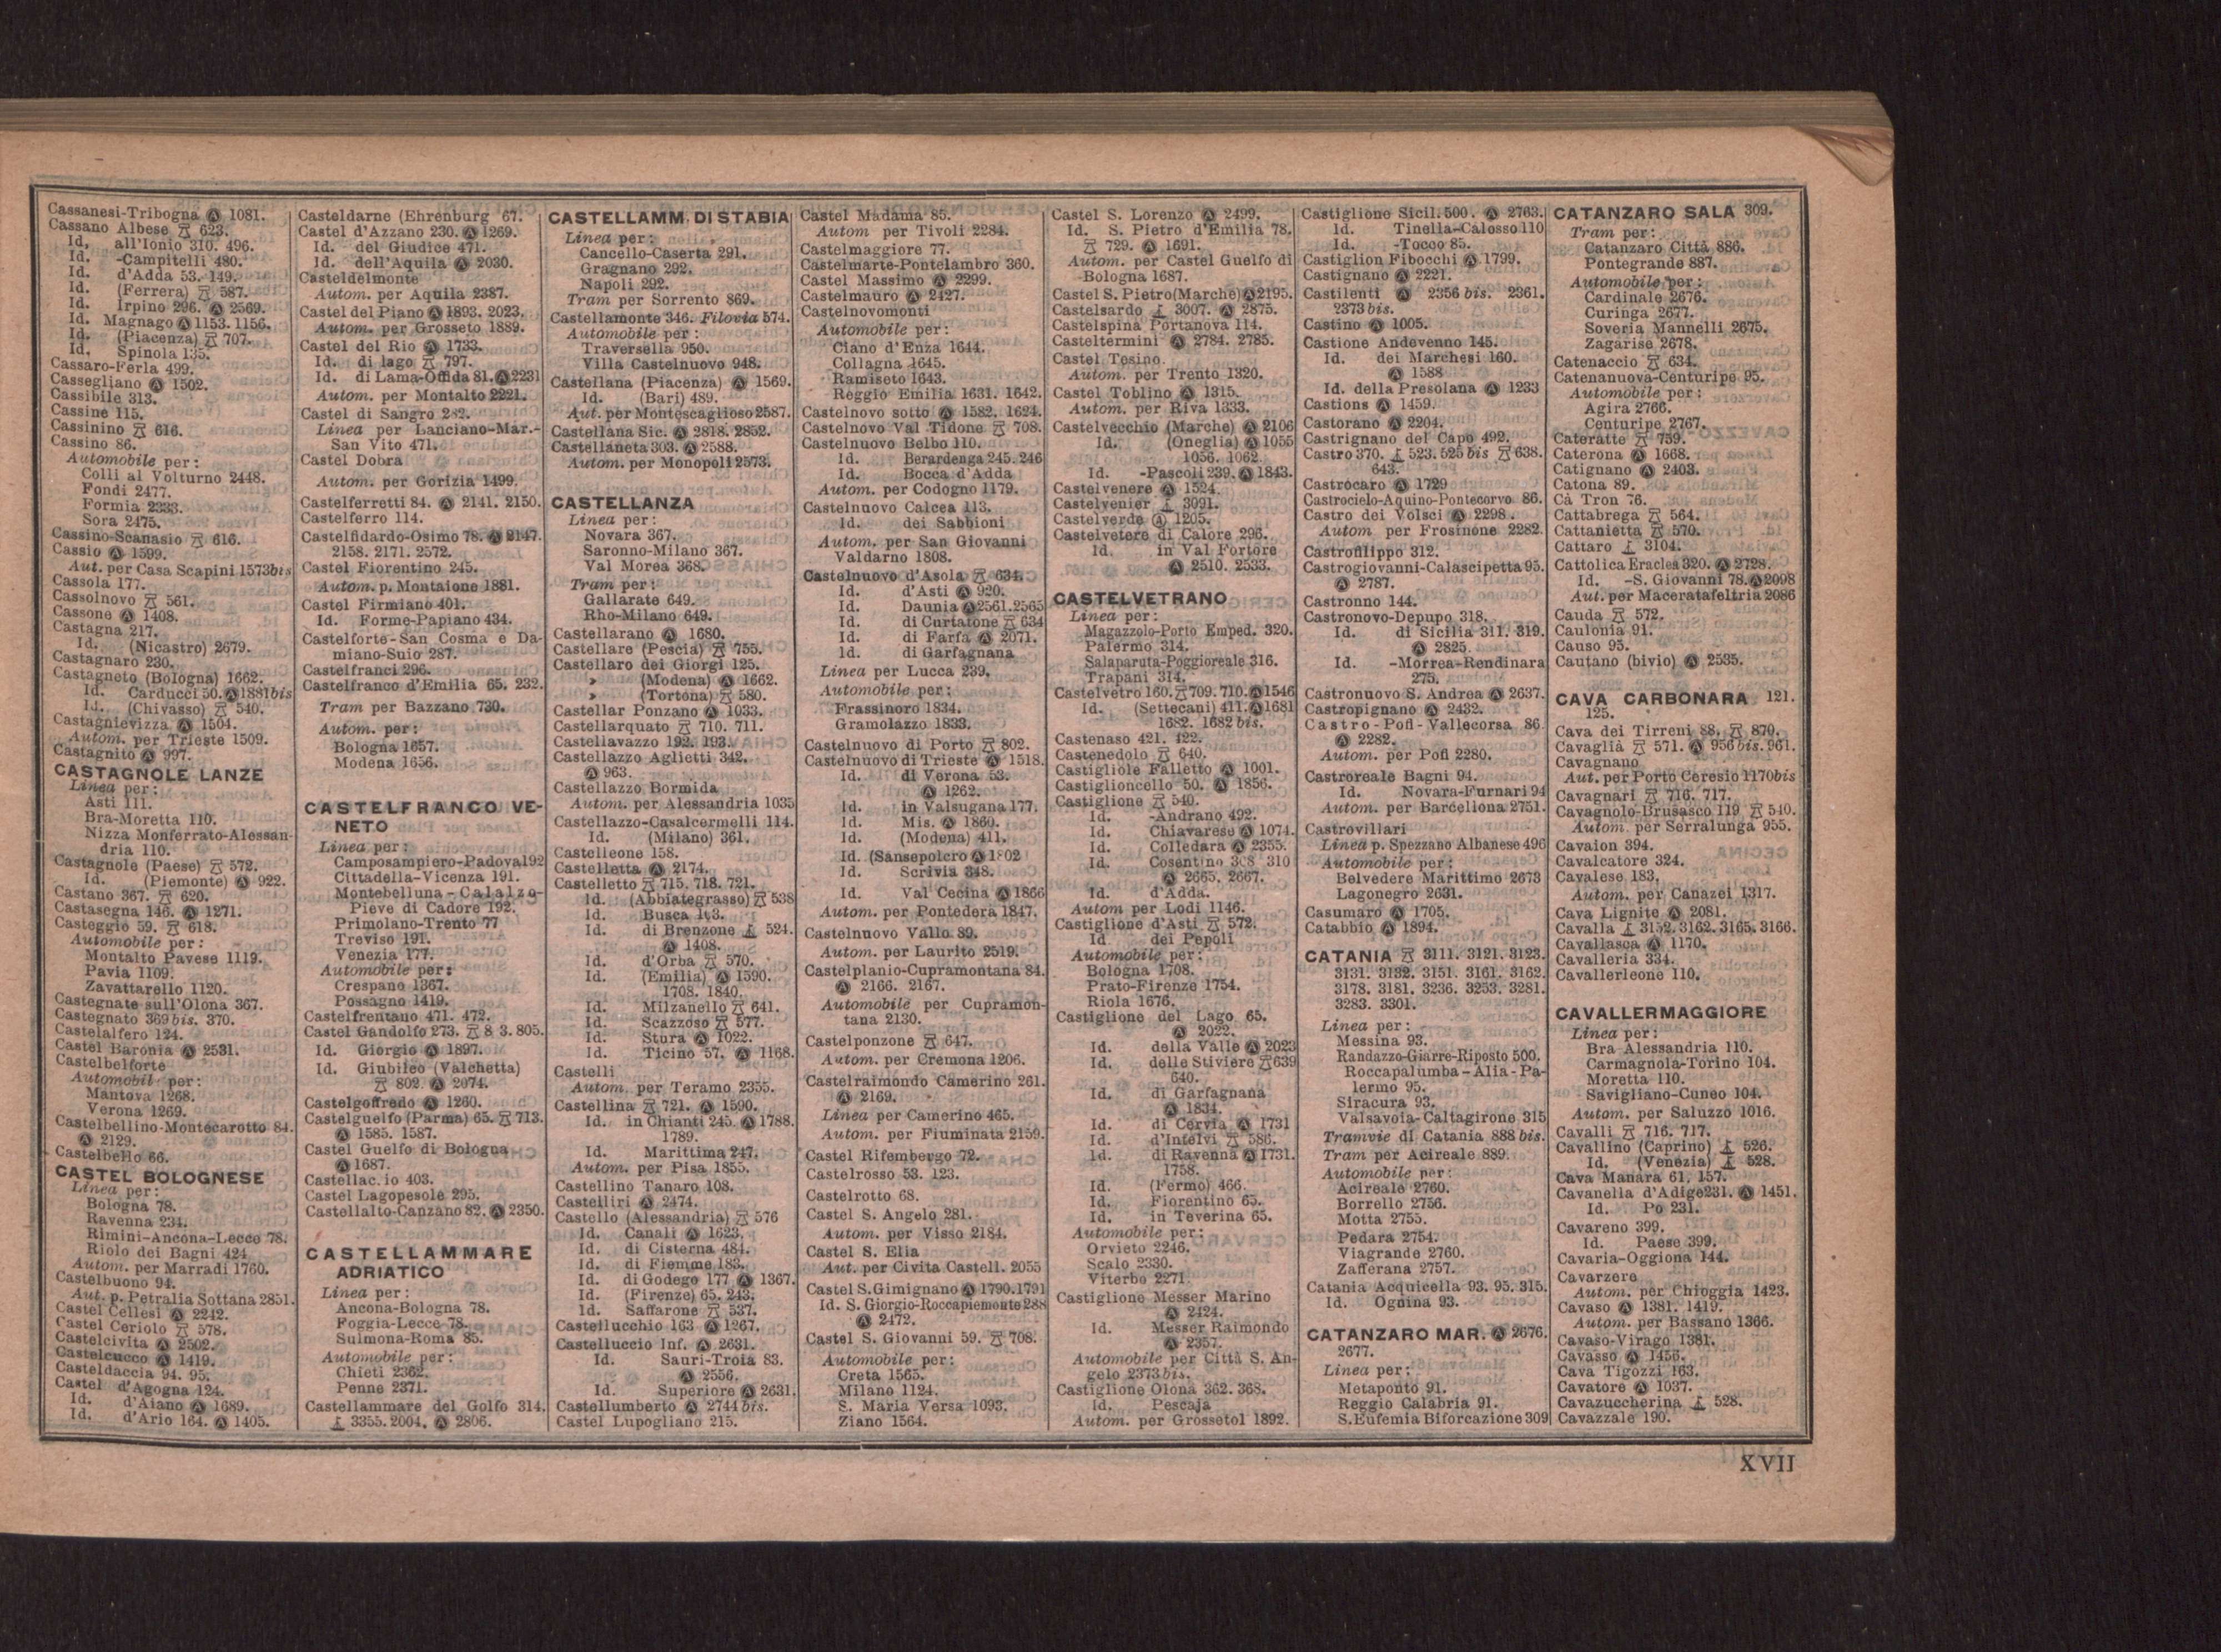 Cassanesi-Tribogna Ⓐ 1081.
Cassano Albese 623.
Id. all'Ionio 310. 496.
Id. -Campitelli 480.
Id. d'Adda 53. 149.
Id. (Ferrera) 587.
Id. Irpino 296. Ⓐ 2569.
Id. Magnago Ⓐ 1153. 1156.
Id. (Piacenza) 707.
Id. Spinola 135.
Cassaro-Ferla 499.
Cassegliano Ⓐ 1502.
Cassibile 313.
Cassine 115.
Cassinino 616.
Cassino 86.
Automobile per:
Colli al Volturno 2448.
Fondi 2477.
Formia 2333.
Sora 2475.
Cassino-Scanasio 616.
Cassio Ⓐ 1599.
Aut. per Casa Scapini 1573bis
Cassola 177.
Cassolnovo 561.
Cassone Ⓐ 1408.
Castagna 217.
Id. (Nicastro) 2679.
Castagnaro 230.
Castagneto (Bologna) 1662.
Id. Carducci 50. Ⓐ 1881bis
Id. (Chivasso) 540.
Castagnievizza Ⓐ 1504.
Autom. per Trieste 1509.
Castagnito Ⓐ 997.
CASTAGNOLE LANZE
Linea per:
Asti 111.
Bra-Moretta 110.
Nizza Monferrato-Alessan-
dria 110.
Castagnole (Paese) 572.
Id. (Piemonte) Ⓐ 922.
Castano 367. 620.
Castasegna 146. Ⓐ 1271.
Casteggio 59. 618.
Automobile per:
Montalto Pavese 1119.
Pavia 1109.
Zavattarello 1120.
Castegnate sull'Olona 367.
Castegnato 369bis. 370.
Castelalfero 124.
Castel Baronia Ⓐ 2531.
Castelbelforte
Automobil per:
Mantova 1268.
Verona 1269.
Castelbellino-Montecarotto 84.
Ⓐ 2129.
Castelbello 66.
CASTEL BOLOGNESE
Linea per:
Bologna 78.
Ravenna 234.
Rimini-Ancona-Lecce 78.
Riolo dei Bagni 424
Autom. per Marradi 1760.
Castelbuono 94.
Aut. p. Petralia Sottana 2851.
Castel Cellesi Ⓐ 2242.
Castel Ceriolo 578.
Castelcivita Ⓐ 2502.
Castelcucco Ⓐ 1419.
Casteldaccia 94. 95.
Castel d'Agogna 124.
Id. d'Aiano Ⓐ 1689.
Id. d'Ario 164. Ⓐ 1405.
Casteldarne (Ehrenburg 67.
Castel d'Azzano 230. Ⓐ 1269.
Id. del Giudice 471.
Id. dell'Aquila Ⓐ 2030.
Casteldelmonte
Autom. per Aquila 2387.
Castel del Piano Ⓐ 1893. 2023.
Autom. per Grosseto 1889.
Castel del Rio Ⓐ 1733.
Id. di lago 797.
Id. di Lama-Offida 81. Ⓐ 2231
Autom. per Montalto 2221.
Castel di Sangro 282.
Linea per Lanciano-Mar.-
San Vito 471.
Castel Dobra
Autom. per Gorizia 1499.
Castelferretti 84. Ⓐ 2141. 2150.
Castelferro 114.
Castelfidardo-Osimo 78. Ⓐ 2147.
2158. 2171. 2572.
Castel Fiorentino 245.
Autom. p. Montaione 1881.
Castel Firmiano 401.
Id. Forme-Papiano 434.
Castelforte-San Cosma e Da-
miano-Suio 287.
Castelfranci 296.
Castelfranco d'Emilia 65. 232.
Tram per Bazzano 730.
Autom. per:
Bologna 1657.
Modena 1656.
CASTELFRANCO VE-
NETO
Linea per:
Camposampiero-Padova 192
Cittadella-Vicenza 191.
Montebelluna-Calalzo-
Pieve di Cadore 192.
Primolano-Trento 77
Treviso 191.
Venezia 177.
Automobile per:
Crespano 1367.
Possagno 1419.
Castelfrentano 471. 472.
Castel Gandolfo 273. 8 3. 805.
Id. Giorgio Ⓐ 1897.
Id. Giubileo (Valchetta)
802. Ⓐ 2074.
Castelgoffredo Ⓐ 1260.
Castelguelfo (Parma) 65. 713.
Ⓐ 1585. 1587.
Castel Guelfo di Bologna
Ⓐ 1687.
Castellac.io 403.
Castel Lagopesole 295.
Castellalto-Canzano 82. Ⓐ 2350.
CASTELLAMMARE
ADRIATICO
Linea per:
Ancona-Bologna 78.
Foggia-Lecce 78.
Sulmona-Roma 85.
Automobile per:
Chieti 2362.
Penne 2371.
Castellammare del Golfo 314.
3355. 2004. Ⓐ 2806.
CASTELLAMM. DI STABIA
Linea per:
Cancello-Caserta 291.
Gragnano 292.
Napoli 292.
Tram per Sorrento 869.
Castellamonte 346. Filovia 574.
Automobile per:
Traversella 950.
Villa Castelnuovo 948.
Castellana (Piacenza) Ⓐ 1569.
Id. (Bari) 489.
Aut. per Montescaglioso 2587.
Castellana Sic. Ⓐ 2818. 2852.
Castellaneta 303. Ⓐ 2588.
Autom. per Monopoli 2573.
CASTELLANZA
Linea per:
Novara 367.
Saronno-Milano 367.
Val Morea 368.
Tram per:
Gallarate 649.
Rho-Milano 649.
Castellarano Ⓐ 1680.
Castellare (Pescia) 755.
Castellaro dei Giorgi 125.
» (Modena) Ⓐ 1662.
» (Tortona) 580.
Castellar Ponzano Ⓐ 1033.
Castellarquato 710. 711.
Castellavazzo 192. 193.
Castellazzo Aglietti 342.
Ⓐ 963.
Castellazzo Bormida
Autom. per Alessandria 1035
Castellazzo-Casalcermelli 114.
Id. (Milano) 361.
Castelleone 158.
Castelletta Ⓐ 2174.
Castelletto 715. 718. 721.
Id. (Abbiategrasso) 538
Id. Busca 1 3.
Id. di Brenzone 524.
Ⓐ 1408.
Id. d'Orba 570.
Id. (Emilia) Ⓐ 1590.
1708. 1840.
Id. Milzanello 641.
Id. Scazzoso 577.
Id. Stura Ⓐ 1022.
Id. Ticino 57. Ⓐ 1168.
Castelli
Autom. per Teramo 2355.
Castellina 721. Ⓐ 1590.
Id. in Chianti 245. Ⓐ 1788.
1789.
Id. Marittima 247.
Autom. per Pisa 1855.
Castellino Tanaro 108.
Castelliri Ⓐ 2474.
Castello (Alessandria) 576
Id. Canali Ⓐ 1623.
Id. di Cisterna 484.
Id. di Fiemme 183.
Id. di Godego 177 Ⓐ 1367.
Id. (Firenze) 65. 243.
Id. Saffarone 537.
Castellucchio 163 Ⓐ 1267.
Castelluccio Inf. Ⓐ 2631.
Id. Sauri-Troia 83.
Ⓐ 2556.
Id. Superiore Ⓐ 2631.
Castellumberto Ⓐ 2744bis.
Castel Lupogliano 215.
Castel Madama 85.
Autom per Tivoli 2284.
Castelmaggiore 77.
Castelmarte-Pontelambro 360.
Castel Massimo Ⓐ 2299.
Castelmauro Ⓐ 2427.
Castelnovomonti
Automobile per:
Ciano d'Enza 1644.
Collagna 1645.
Ramiseto 1643.
Reggio Emilia 1631. 1642.
Castelnovo sotto Ⓐ 1582. 1624.
Castelnovo Val Tidone 708.
Castelnuovo Belbo 110.
Id. Berardenga 245. 246
Id. Bocca d'Adda
Autom. per Codogno 1179.
Castelnuovo Calcea 113.
Id. dei Sabbioni
Autom. per San Giovanni
Valdarno 1808.
Castelnuovo d'Asola 634.
Id. d'Asti Ⓐ 920.
Id. Daunia Ⓐ 2561. 2565
Id. di Curtatone 634
Id. di Farfa Ⓐ 2071.
Id. di Garfagnana
Linea per Lucca 239.
Automobile per:
Frassinoro 1834.
Gramolazzo 1833.
Castelnuovo di Porto 802.
Castelnuovo di Trieste Ⓐ 1518.
Id. di Verona 53.
Ⓐ 1262.
Id. in Valsugana 177.
Id. Mis. Ⓐ 1860.
Id. (Modena) 411.
Id. (Sansepolcro Ⓐ 1802
Id. Scrivia 348.
Id. Val Cecina Ⓐ 1866
Autom. per Pontedera 1847.
Castelnuovo Vallo 89.
Autom. per Laurito 2519.
Castelplanio-Cupramontana 84.
Ⓐ 2166. 2167.
Automobile per Cupramon-
tana 2130.
Castelponzone 647.
Autom. per Cremona 1206.
Castelraimondo Camerino 261.
Ⓐ 2169.
Linea per Camerino 465.
Autom. per Fiuminata 2159.
Castel Rifembergo 72.
Castelrosso 53. 123.
Castelrotto 68.
Castel S. Angelo 281.
Autom. per Visso 2184.
Castel S. Elia
Aut. per Civita Castell. 2055
Castel S. Gimignano Ⓐ 1790. 1791
Id. S. Giorgio-Roccapiemonte 288
Ⓐ 2472.
Castel S. Giovanni 59. 708.
Automobile per:
Creta 1565.
Milano 1124.
S. Maria Versa 1093.
Ziano 1564.
Castel S. Lorenzo Ⓐ 2499.
Id. S. Pietro d'Emilia 78.
729. Ⓐ 1691.
Autom. per Castel Guelfo di
Bologna 1687.
Castel S. Pietro (Marche) Ⓐ 2195.
Castelsardo 3007. Ⓐ 2875.
Castelspina Portanova 114.
Casteltermini Ⓐ 2784. 2785.
Castel Tesino
Autom. per Trento 1320.
Castel Toblino Ⓐ 1315.
Autom. per Riva 1333.
Castelvecchio (Marche) Ⓐ 2106
Id. (Oneglia) Ⓐ 1055
1056. 1062
Id. -Pascoli 239. Ⓐ 1843.
Castelvenere Ⓐ 1524.
Castelvenier 3091.
Castelverde Ⓐ 1205.
Castelvetere di Calore 296.
Id. in Val Fortore
Ⓐ 2510. 2533.
CASTELVETRANO
Linea per:
Magazzolo-Porto Emped. 320.
Palermo 314.
Salaparuta-Poggioreale 316.
Trapani 314.
Castelvetro 160. 709. 710. Ⓐ 1546
Id. (Settecani) 411. Ⓐ 1681
1682. 1682 bis.
Castenaso 421. 422.
Castenedolo 640.
Castigliole Falletto Ⓐ 1001.
Castiglioncello 50. Ⓐ 1856.
Castiglione 540.
Id. -Andrano 492.
Id. Chiavarese Ⓐ 1074.
Id. Colledara Ⓐ 2355.
Id. Cosentino 308 310
Ⓐ 2665. 2667.
Id. d'Adda.
Autom per Lodi 1146.
Castiglione d'Asti 572.
Id. dei Pepoli
Automobile per:
Bologna 1708.
Prato-Firenze 1754.
Riola 1676.
Castiglione del Lago 65.
Ⓐ 2022.
Id. della Valle Ⓐ 2023
Id. delle Stiviere 639
640.
Id. di Garfagnana
Ⓐ 1834.
Id. di Cervia Ⓐ 1731
Id. d'Intelvi 586.
Id. di Ravenna Ⓐ 1731.
1758.
Id. (Fermo) 466.
Id. Fiorentino 65.
Id. in Teverina 65.
Automobile per:
Orvieto 2246.
Scalo 2330.
Viterbo 2271.
Castiglione Messer Marino
Ⓐ 2424.
Id. Messer Raimondo
Ⓐ 2357.
Automobile per Città S. An-
gelo 2373bis.
Castiglione Olona 362. 368.
Id. Pescaja
Autom. per Grossetol 1892.
Castiglione Sicil. 500. Ⓐ 2763.
Id. Tinella-Calosso 110
Id. -Tocco 85.
Castiglion Fibocchi Ⓐ 1799.
Castignano Ⓐ 2221.
Castilenti Ⓐ 2356 bis. 2361.
2373 bis.
Castino Ⓐ 1005.
Castione Andevenno 145.
Id. dei Marchesi 160.
Ⓐ 1588
Id. della Presolana Ⓐ 1233
Castions Ⓐ 1459.
Castorano Ⓐ 2204.
Castrignano del Capo 492.
Castro 370. 523. 525 bis 638.
643.
Castrocaro Ⓐ 1729
Castrocielo-Aquino-Pontecorvo 86.
Castro dei Volsci Ⓐ 2298.
Autom per Frosinone 2282.
Castrofilippo 312.
Castrogiovanni-Calascipetta 95.
Ⓐ 2787.
Castronno 144.
Castronovo-Depupo 318.
Id. di Sicilia 311. 319.
Ⓐ 2825.
Id. -Morrea-Rendinara
275.
Castronuovo S. Andrea Ⓐ 2637.
Castropignano Ⓐ 2432.
Castro-Pofi-Vallecorsa 86
Ⓐ 2282.
Autom. per Pofi 2280.
Castroreale Bagni 94.
Id. Novara-Furnari 94
Autom. per Barcellona 2751.
Castrovillari
Linea p. Spezzano Albanese 496
Automobile per:
Belvedere Marittimo 2673
Lagonegro 2631.
Casumaro Ⓐ 1705.
Catabbio Ⓐ 1894.
CATANIA 3111. 3121. 3123.
3131. 3132. 3151. 3161. 3162.
3178. 3181. 3236. 3253. 3281.
3283. 3301.
Linea per:
Messina 93.
Randazzo-Giarre-Riposto 500.
Roccapalumba-Alia-Pa-
lermo 95.
Siracura 93.
Valsavoia-Caltagirone 315
Tramvie di Catania 888 bis.
Tram per Acireale 889.
Automobile per:
Acireale 2760.
Borrello 2756.
Motta 2755.
Pedara 2754.
Viagrande 2760.
Zafferana 2757.
Catania Acquicella 93. 95. 315.
Id. Ognina 93.
CATANZARO MAR. Ⓐ 2676.
2677.
Linea per:
Metaponto 91.
Reggio Calabria 91.
S. Eufemia Biforcazione 309
CATANZARO SALA 309.
Tram per:
Catanzaro Città 886.
Pontegrande 887.
Automobile per:
Cardinale 2676.
Curinga 2677.
Soveria Mannelli 2675.
Zagarise 2678.
Catenaccio 634.
Catenanuova-Centuripe 95.
Automobile per:
Agira 2766.
Centuripe 2767.
Cateratte 759.
Caterona Ⓐ 1668.
Catignano Ⓐ 2403.
Catona 89.
Cà Tron 76.
Cattabrega 564.
Cattanietta 570.
Cattaro 3104.
Cattolica Eraclea 320. Ⓐ 2728.
Id. -S. Giovanni 78. Ⓐ 2098
Aut. per Maceratafeltria 2086
Cauda 572.
Caulonia 91.
Causo 95.
Cautano (bivio) Ⓐ 2535.
CAVA CARBONARA 121.
125.
Cava dei Tirreni 88. 870.
Cavaglià 571. Ⓐ 956bis. 961.
Cavagnano
Aut. per Porto Ceresio 1170bis
Cavagnari 716. 717.
Cavagnolo-Brusasco 119 540.
Autom. per Serralunga 955.
Cavaion 394.
Cavalcatore 324.
Cavalese 183.
Autom. per Canazei 1317.
Cava Lignite Ⓐ 2081.
Cavalla 3152. 3162. 3165. 3166.
Cavallasca Ⓐ 1170.
Cavalleria 334.
Cavallerleone 110.
CAVALLERMAGGIORE
Linea per:
Bra-Alessandria 110.
Carmagnola-Torino 104.
Moretta 110.
Savigliano-Cuneo 104.
Autom. per Saluzzo 1016.
Cavalli 716. 717.
Cavallino (Caprino) 526.
Id. (Venezia) 528.
Cava Manara 61. 157.
Cavanella d'Adige 231. Ⓐ 1451.
Id. Po 231.
Cavareno 399.
Id. Paese 399.
Cavaria-Oggiona 144.
Cavarzere
Autom. per Chioggia 1423.
Cavaso Ⓐ 1381. 1419.
Autom. per Bassano 1366.
Cavaso-Virago 1381.
Cavasso Ⓐ 1456.
Cava Tigozzi 163.
Cavatore Ⓐ 1037.
Cavazuccherina 528.
Cavazzale 190.
XVII